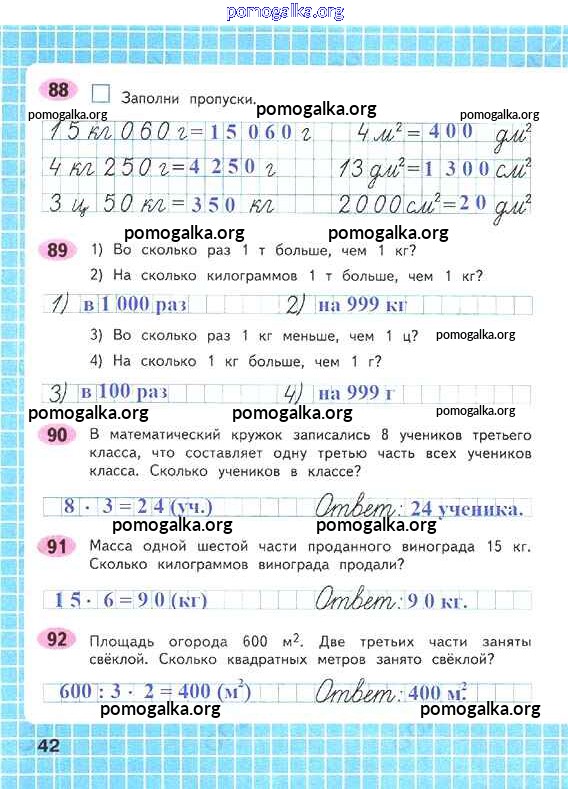 pomogalka.org
88 Заполни пропуски.
pomogalka.org pomogalka.org pomogalka.org
15 кг 060 г = 15 060 г 4 м² = 400 дм²
4 кг 250 г = 4 250 г 13 дм² = 1 300 см²
3 ц 50 кг = 350 кг 2000 см² = 20 дм²
pomogalka.org pomogalka.org
89 1) Во сколько раз 1 т больше, чем 1 кг?
2) На сколько килограммов 1 т больше, чем 1 кг?
1) в 1 000 раз 2) на 999 кг
pomogalka.org
3) Во сколько раз 1 кг меньше, чем 1 ц?
4) На сколько 1 кг больше, чем 1 г?
3) в 100 раз 4) на 999 г
pomogalka.org pomogalka.org pomogalka.org
90 В математический кружок записались 8 учеников третьего
класса, что составляет одну третью часть всех учеников
класса. Сколько учеников в классе?
8 · 3 = 24 (уч.) Ответ: 24 ученика.
pomogalka.org pomogalka.org
91 Масса одной шестой части проданного винограда 15 кг.
Сколько килограммов винограда продали?
15 · 6 = 90 (кг) Ответ: 90 кг.
pomogalka.org pomogalka.org
92 Площадь огорода 600 м². Две третьих части заняты
свёклой. Сколько квадратных метров занято свёклой?
600 : 3 · 2 = 400 (м²) Ответ: 400 м².
pomogalka.org pomogalka.org
42
pomogalka.org